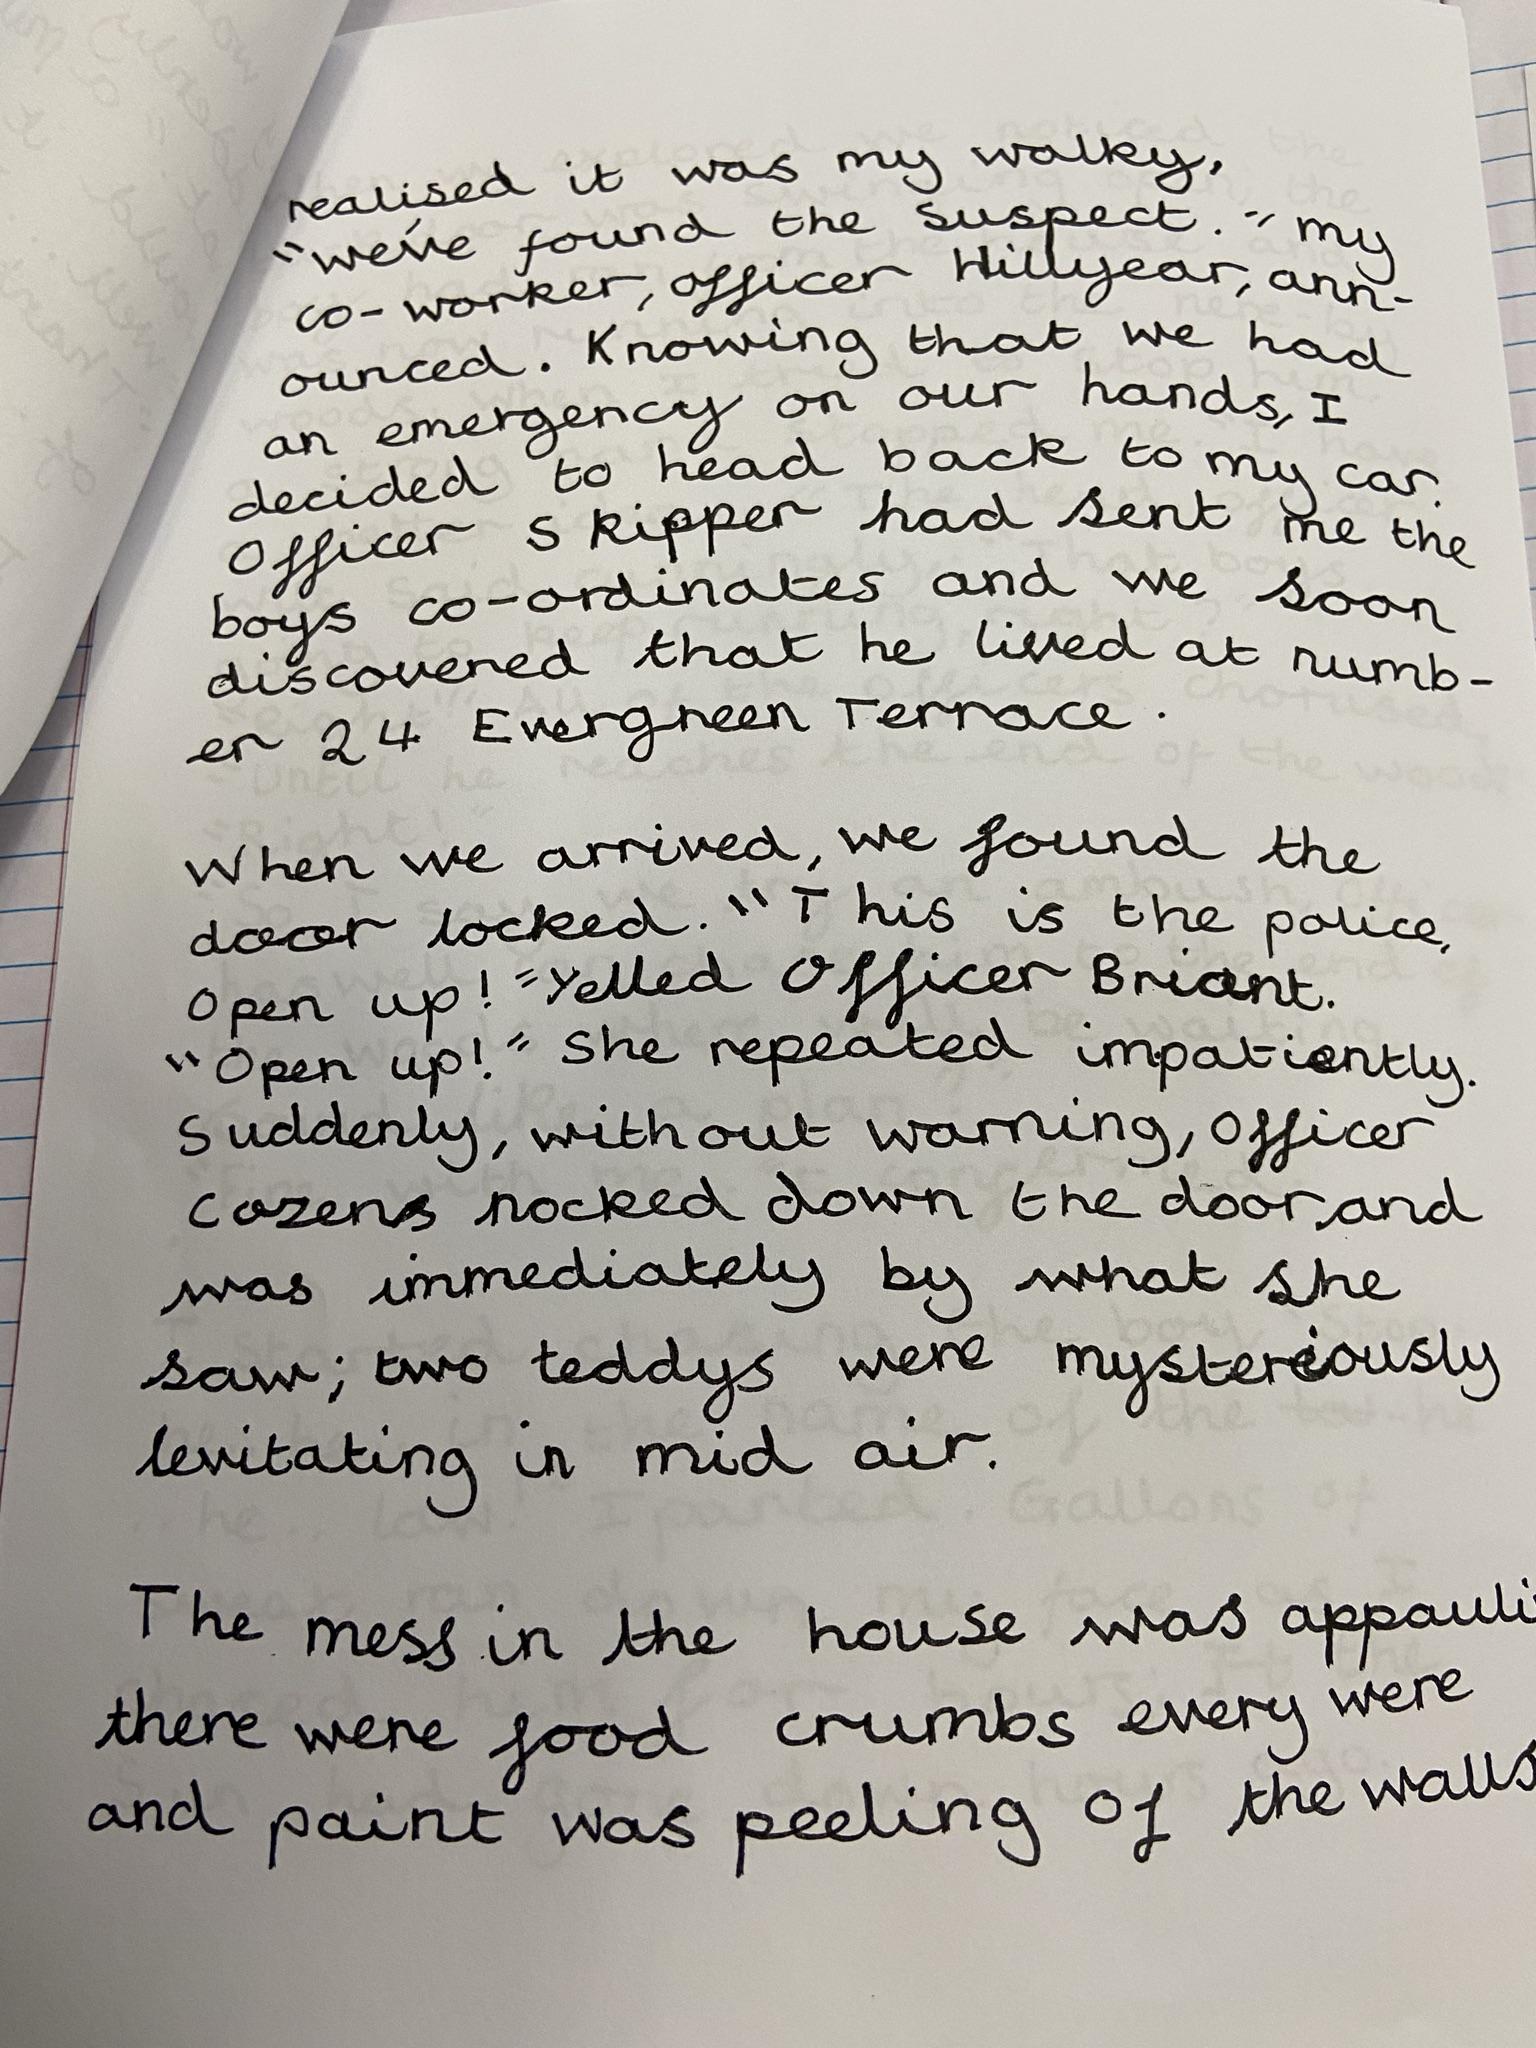 realised it was my walky,
"we've found the suspect." my
co-worker, officer Hillyear, ann-
ounced. Knowing that we had
an emergency on our hands, I
decided to head back to my car.
Officer Skipper had sent me the
boys co-ordinates and we soon
discovered that he lived at numb-
er 24 Evergreen Terrace.
When we arrived, we found the
door locked. "This is the police,
Open up!" Yelled Officer Briant.
"Open up!" She repeated impatiently.
Suddenly, without warning, Officer
Cozens nocked down the door, and
was immediately by what she
saw; two teddys were mysteriously
levitating in mid air.
The mess in the house was appauli
there were food crumbs every were
and paint was peeling of the walls